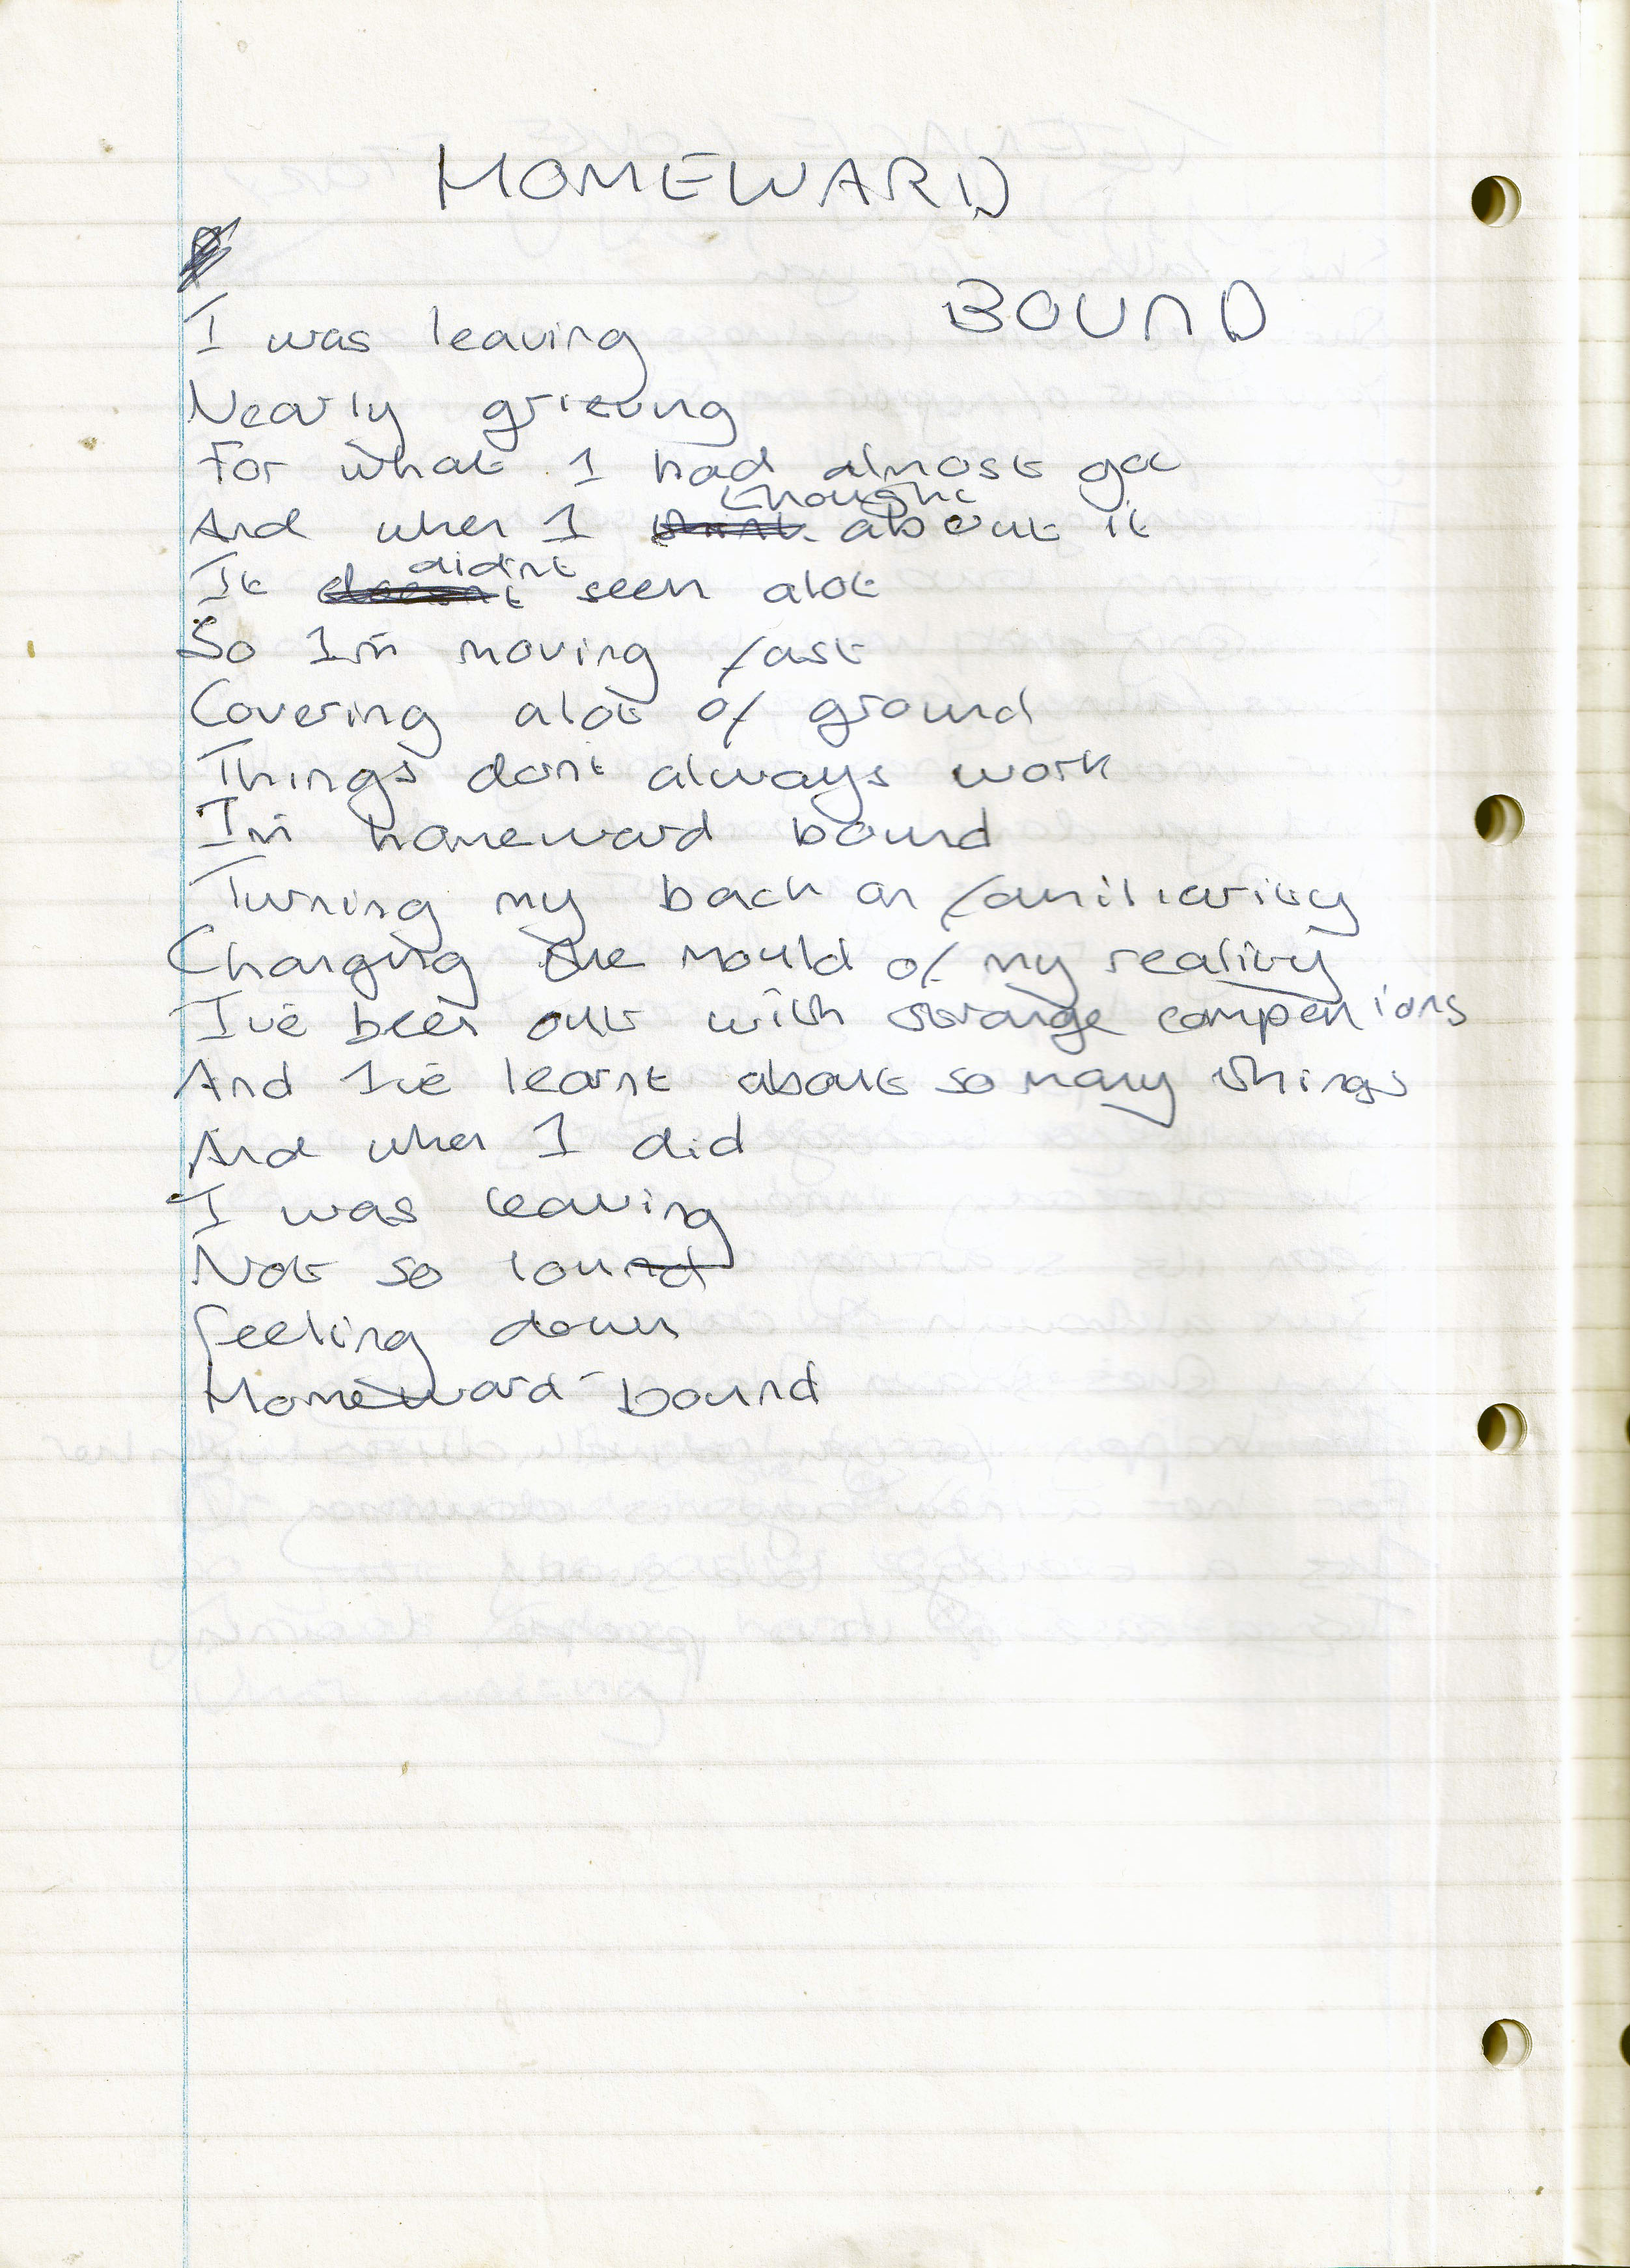 HOMEWARD
BOUND
I was leaving
Nearly grieving
For what I had almost got
And when I thought about it
It didn't seem alot
So I'm moving fast
Covering alot of ground
Things don't always work
I'm homeward bound
Turning my back on familiarity
Changing the mould of my reality
I've been out with strange companions
And I've learnt about so many things
And when I did
I was leaving
Not so loud
Feeling down
Homeward-bound